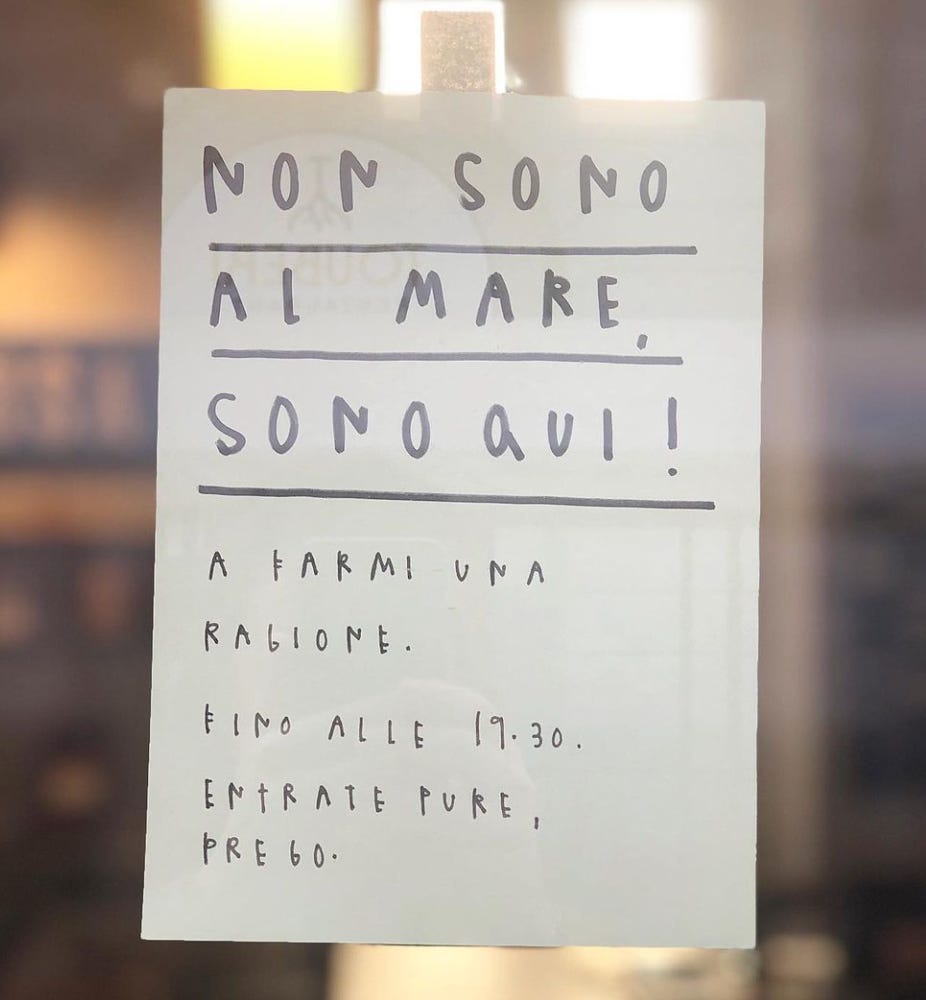 NON SONO
AL MARE,
SONO QUI!
A FARMI UNA
RAGIONE.
FINO ALLE 19.30.
ENTRATE PURE,
PREGO.